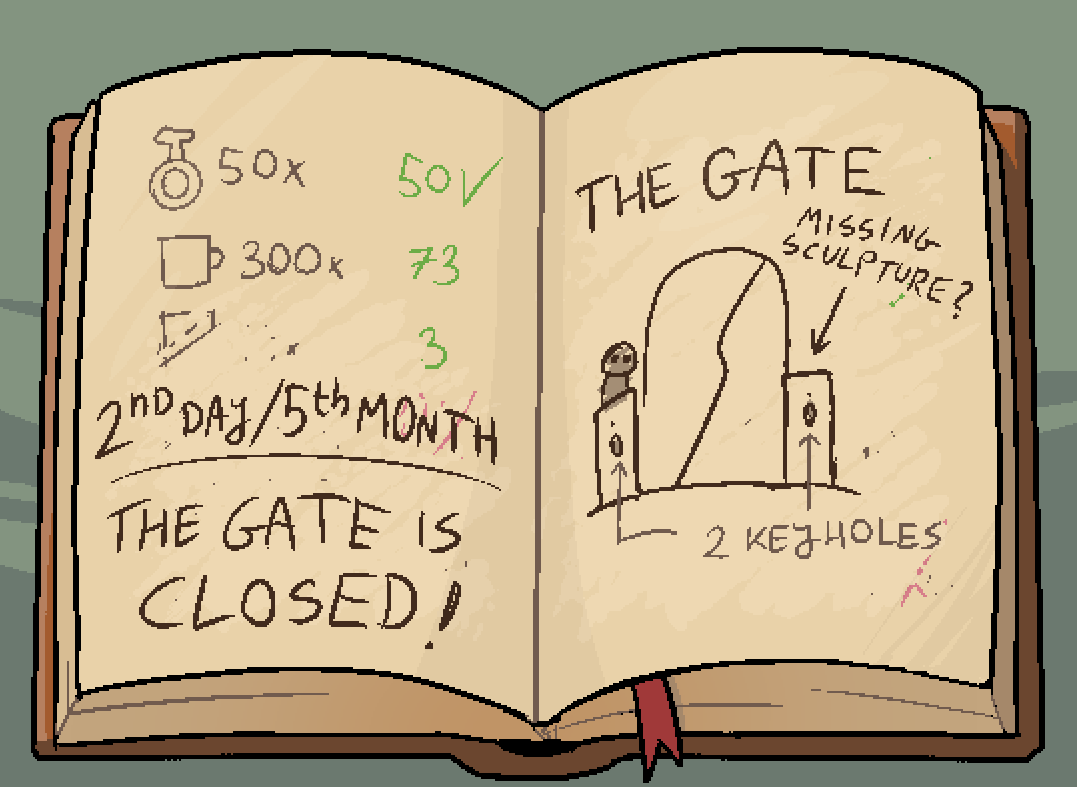 50x 50✓
300x 73
3
2nD DAY/5th MONTH
THE GATE IS
CLOSED!
THE GATE
MISSING
SCULPTURE?
2 KEYHOLES